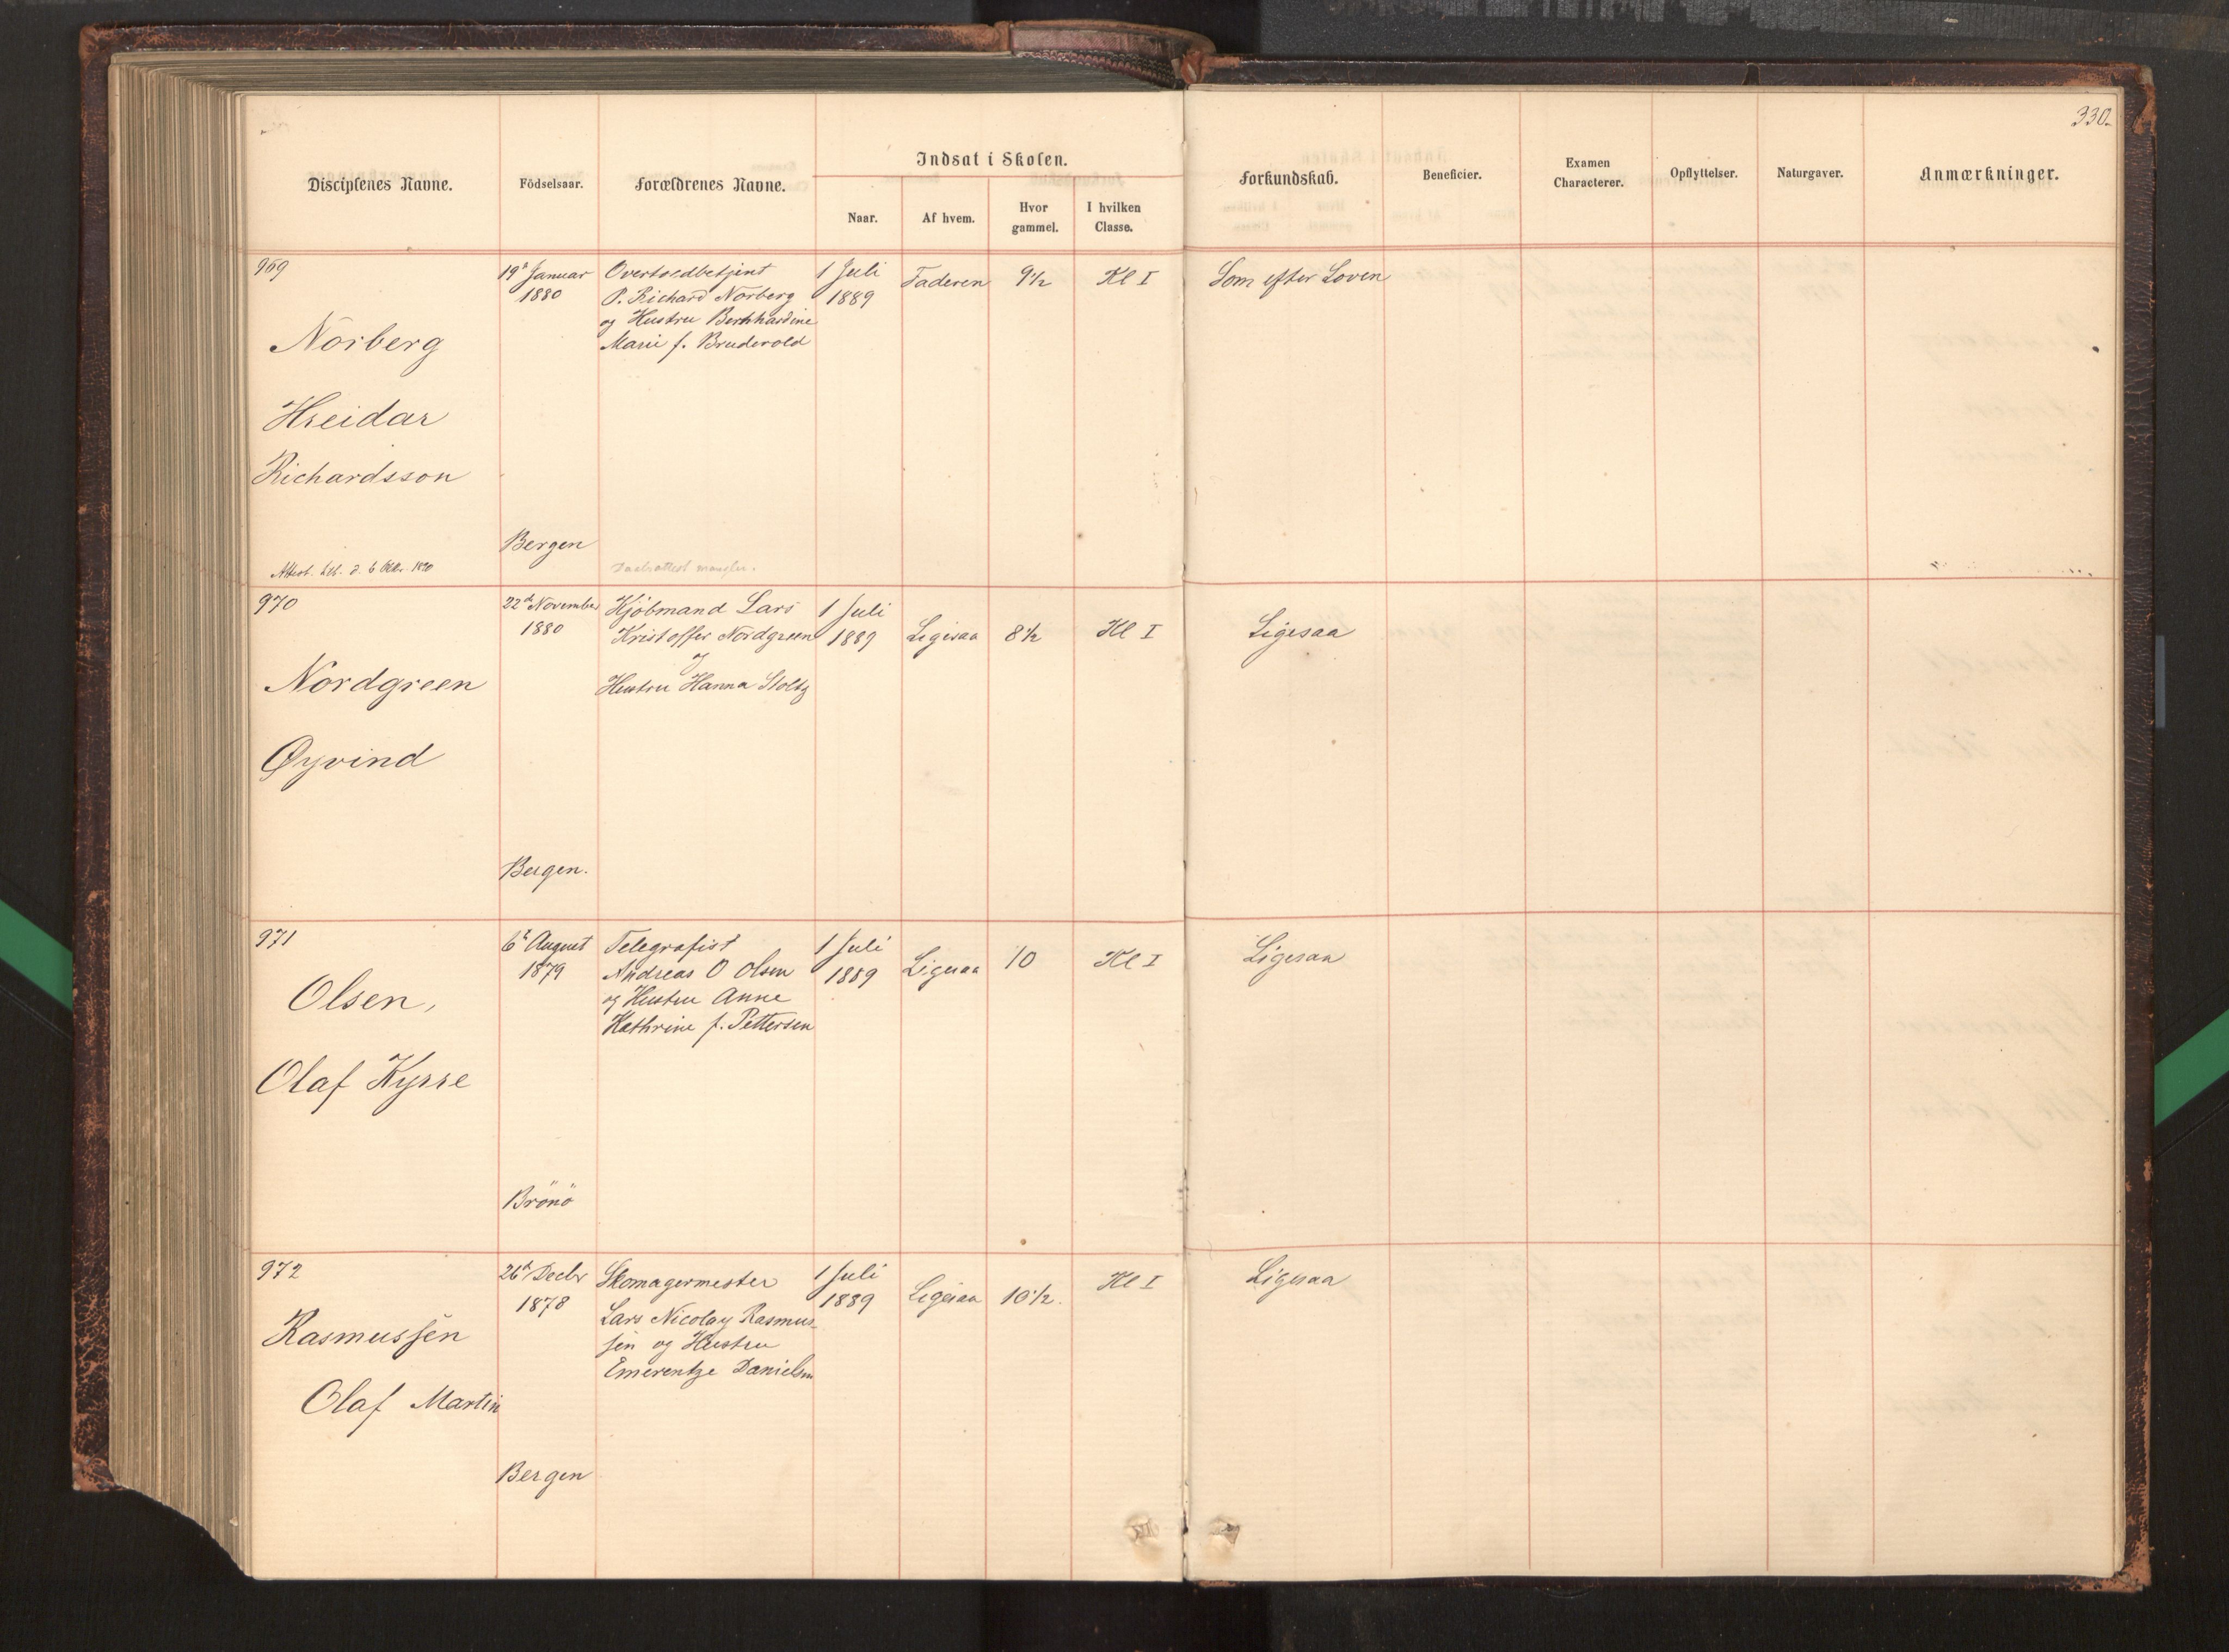 330.
Disciplenes Navne.
Födselsaar.
Forældrenes Navne.
Indsat i Skolen.
Naar.
Af hvem.
Hvor
gammel.
I hvilken
Classe.
Forkundskab.
Beneficier.
Examen
Characterer.
Opflyttelser.
Naturgaver.
Anmærkninger.
969
Norberg
Hreidar
Richardsson
19d Januar
1880
Bergen
Overtoldbetjent
P. Richard Norberg
og Hustru Bernhardine
Marie f. Bruderold
1 Juli
1889
Faderen
9½
Kl I
Som efter Loven
Attest. 1890
mangler.
970
Nordgreen
Øyvind
22d November
1880
Bergen.
Kjöbmand Lars
Kristoffer Nordgreen
og
Hustru Hanna Stoltz
1 Juli
1889
Ligesaa
8½
Kl I
Ligesaa
971
Olsen,
Olaf Kyrre
6t August
1879
Brönö
Telegrafist
Andreas O Olsen
og Hustru Anne
Kathrine f. Pettersen
1 Juli
1889
Ligesaa
10
Kl I
Ligesaa
972
Rasmussen
Olaf Martin
26d Decbr
1878
Bergen
Skomagermester
Lars Nicolay Rasmus-
sen og Hustru
Emerentze Danielsen
1 Juli
1889
Ligesaa
10½.
Kl I
Ligesaa